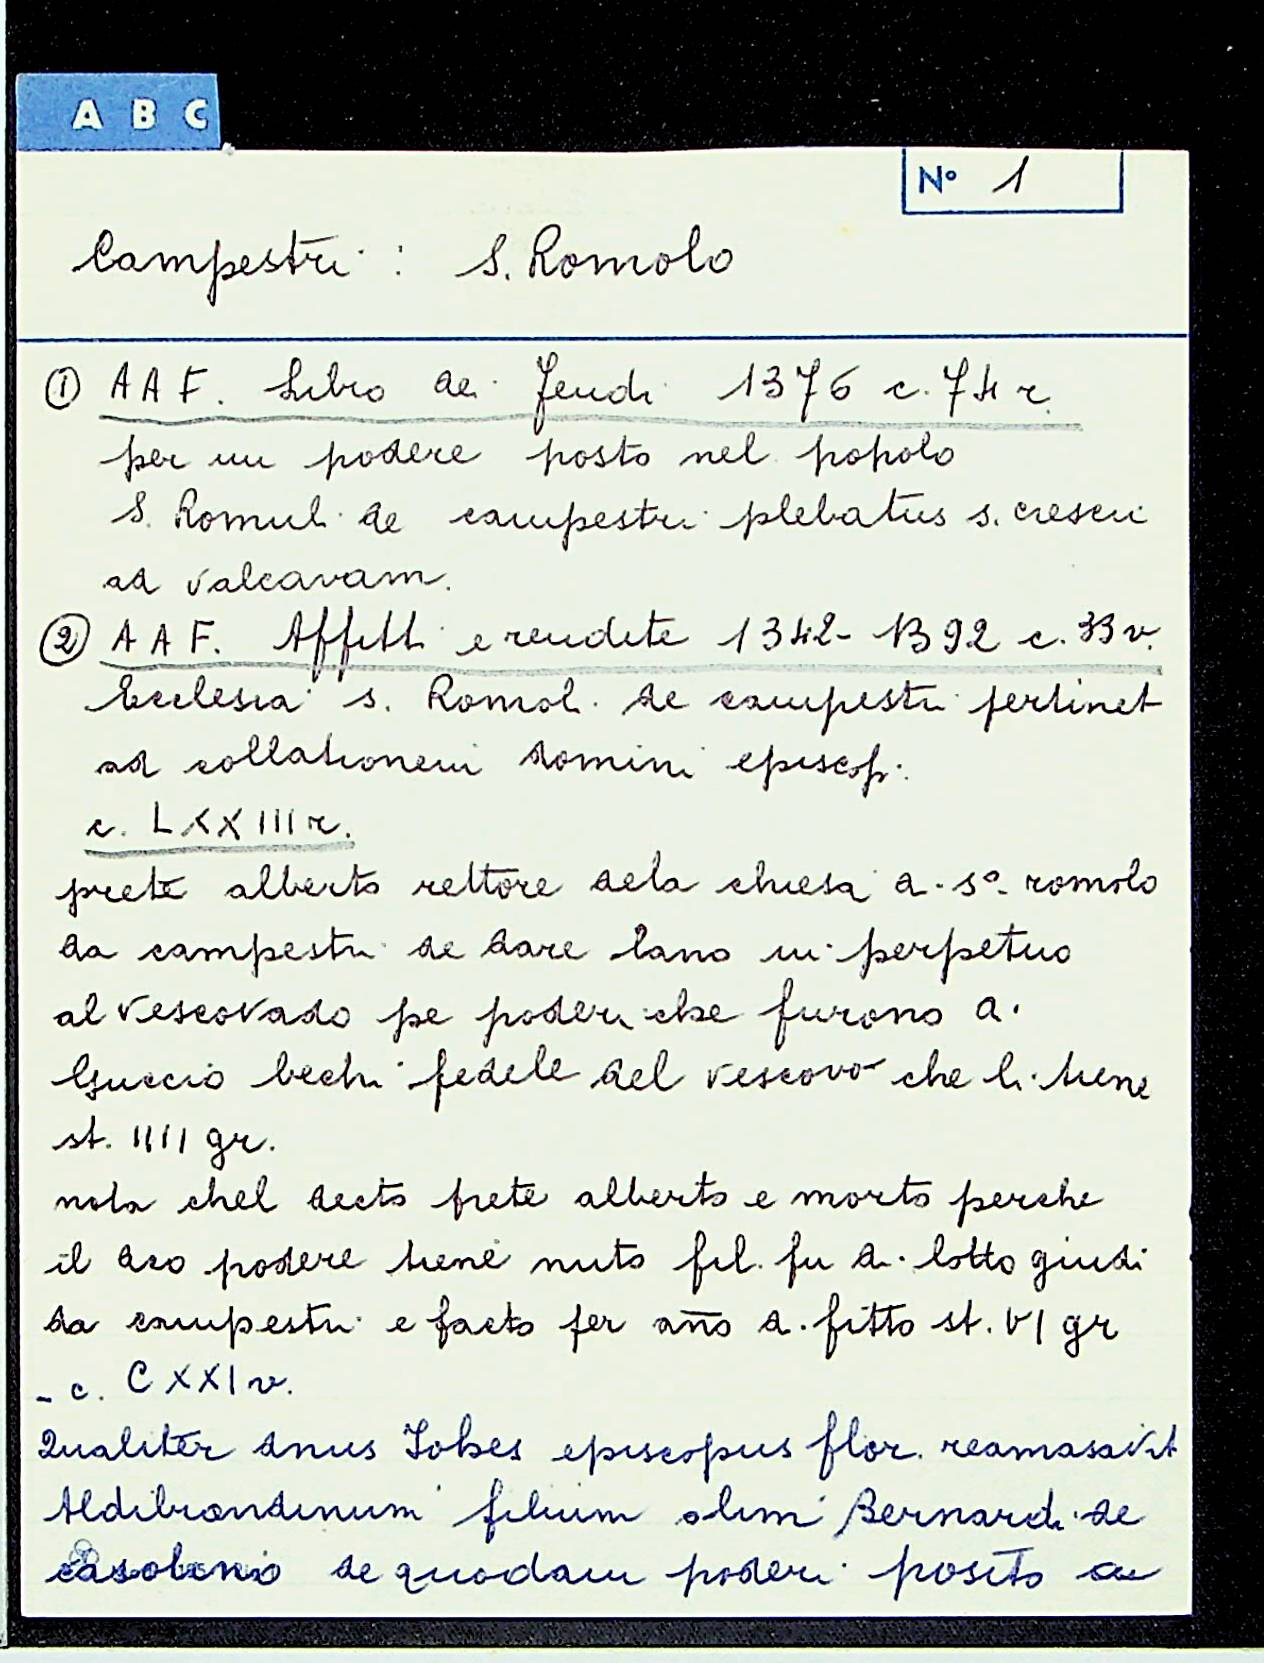 A B C
N° 1
Campestri : S. Romolo
① AAF. Libro dei feudi 1376 c. 74 r.
per un podere posto nel popolo
S. Romuli de campestri plebatus s. cresci
ad valcavam.
② AAF. Affitti e rendite 1342-1392 c. 33 v.
Ecclesia s. Romoli de campestri pertinet
ad collationem domini episcopi.
c. LXXIII r.
prete alberto rettore dela chiesa di so. romolo
da campestri de dare lano in perpetuo
al vescovado pe poderi che furono di
Guccio bechi fedele del vescovo che li tiene
st. IIII gr.
nota chel decto prete alberto e morto perche
il dco podere tiene nuto fil. fu di lotto giudi
da campestri e facto per año di fitto st. VI gr
- c. CXXI v.
Qualiter dnus Johes episcopus flor. reamasavit
Aldibrandinum filium olim Bernardi de
de quodam poderi posito